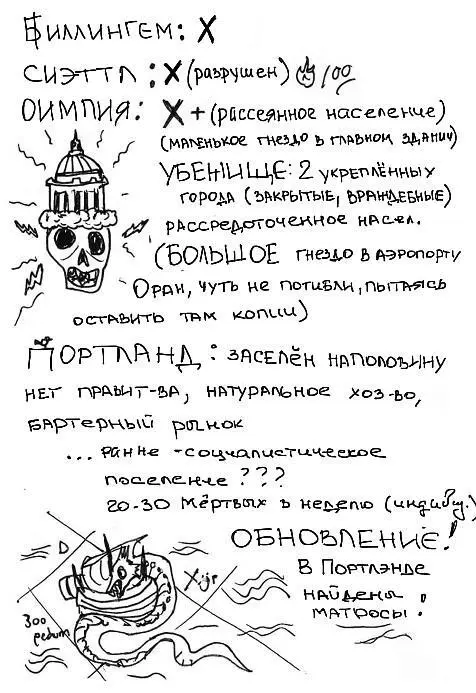 Биллингем: X
СИЭТТЛ: X (разрушен) 100
ОИМПИЯ: X + (рассеянное население)
(маленькое гнездо в главном здании)
УБЕНИЩЕ: 2 укреплённых
города (закрытые, враждебные)
рассредоточенное насел.
(БОЛЬШОЕ гнездо в аэропорту
Оран, чуть не погибли, пытаясь
оставить там копии)
Портланд: заселён наполовину
нет правит-ва, натуральное хоз-во,
бартерный рынок
... ранне-социалистическое
поселение???
20-30 мёртвых в неделю (индивид.)
ОБНОВЛЕНИЕ!
В Портлэнде
найдены
матросы!
D
300